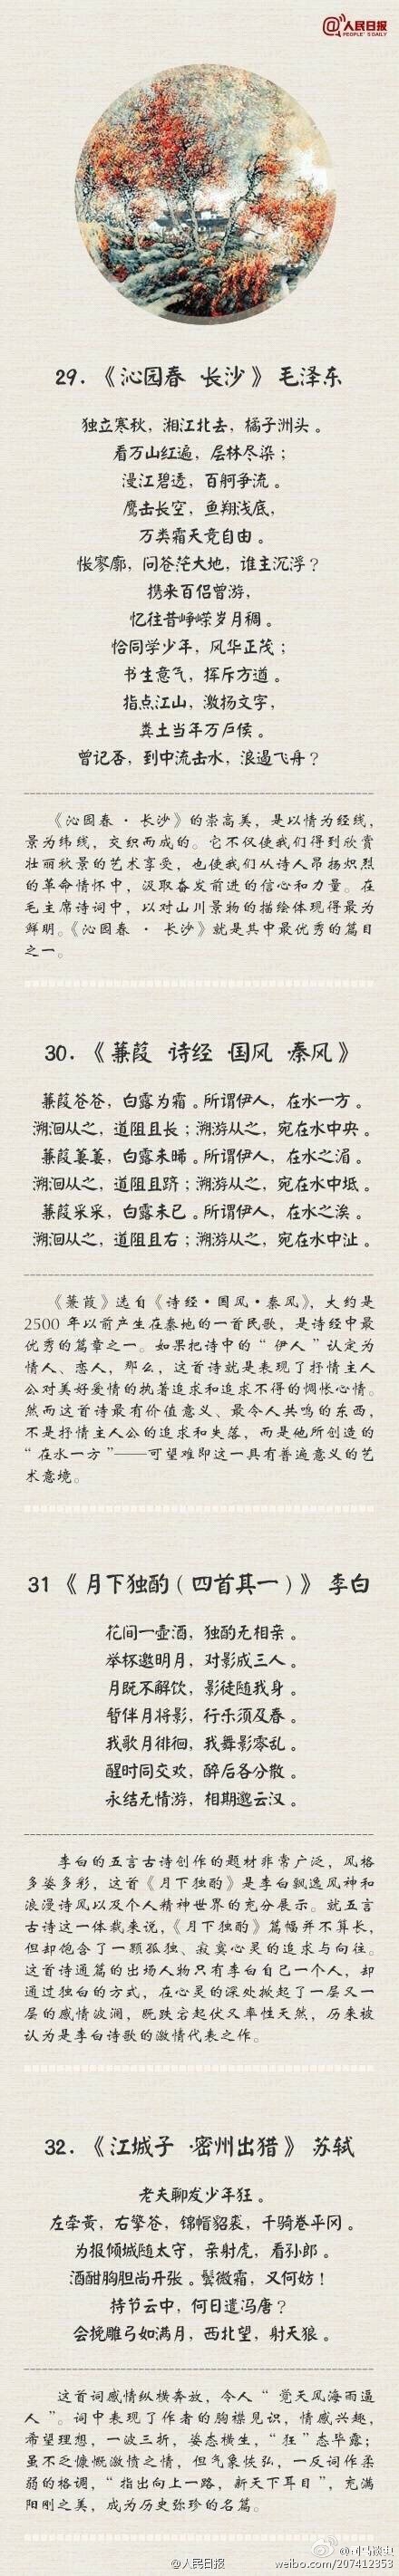 @人民日报
PEOPLE'S DAILY
29.《沁园春 长沙》毛泽东
独立寒秋，湘江北去，橘子洲头。
看万山红遍，层林尽染；
漫江碧透，百舸争流。
鹰击长空，鱼翔浅底，
万类霜天竞自由。
怅寥廓，问苍茫大地，谁主沉浮？
携来百侣曾游，
忆往昔峥嵘岁月稠。
恰同学少年，风华正茂；
书生意气，挥斥方遒。
指点江山，激扬文字，
粪土当年万户侯。
曾记否，到中流击水，浪遏飞舟？
《沁园春·长沙》的崇高美，是以情为经线，
景为纬线，交织而成的。它不仅使我们得到欣赏
壮丽秋景的艺术享受，也使我们从诗人昂扬炽烈
的革命情怀中，汲取奋发前进的信心和力量。在
毛主席诗词中，以对山川景物的描绘体现得最为
鲜明。《沁园春·长沙》就是其中最优秀的篇目
之一。
30.《蒹葭 ·诗经 ·国风 ·秦风》
蒹葭苍苍，白露为霜。所谓伊人，在水一方。
溯洄从之，道阻且长；溯游从之，宛在水中央。
蒹葭萋萋，白露未晞。所谓伊人，在水之湄。
溯洄从之，道阻且跻；溯游从之，宛在水中坻。
蒹葭采采，白露未已。所谓伊人，在水之涘。
溯洄从之，道阻且右；溯游从之，宛在水中沚。
《蒹葭》选自《诗经·国风·秦风》，大约是
2500 年以前产生在秦地的一首民歌，是诗经中最
优秀的篇章之一。如果把诗中的“伊人”认定为
情人、恋人，那么，这首诗就是表现了抒情主人
公对美好爱情的执着追求和追求不得的惆怅心情。
然而这首诗最有价值意义、最令人共鸣的东西，
不是抒情主人公的追求和失落，而是他所创造的
“在水一方”——可望难即这一具有普遍意义的艺
术意境。
31《月下独酌（四首其一）》李白
花间一壶酒，独酌无相亲。
举杯邀明月，对影成三人。
月既不解饮，影徒随我身。
暂伴月将影，行乐须及春。
我歌月徘徊，我舞影零乱。
醒时同交欢，醉后各分散。
永结无情游，相期邈云汉。
李白的五言古诗创作的题材非常广泛，风格
多姿多彩，这首《月下独酌》是李白飘逸风神和
浪漫诗风以及个人精神世界的充分展示。就五言
古诗这一体裁来说，《月下独酌》篇幅并不算长，
但却饱含了一颗孤独、寂寞心灵的追求与向往。
这首诗通篇的出场人物只有李白自己一个人，却
通过独白的方式，在心灵的深处掀起了一层又一
层的感情波澜，既跌宕起伏又率性天然，历来被
认为是李白诗歌的激情代表之作。
32.《江城子 ·密州出猎》 苏轼
老夫聊发少年狂。
左牵黄，右擎苍，锦帽貂裘，千骑卷平冈。
为报倾城随太守，亲射虎，看孙郎。
酒酣胸胆尚开张。鬓微霜，又何妨！
持节云中，何日遣冯唐？
会挽雕弓如满月，西北望，射天狼。
这首词感情纵横奔放，令人“觉天风海雨逼
人”。词中表现了作者的胸襟见识，情感兴趣，
希望理想，一波三折，姿态横生，“狂”态毕露；
虽不乏慷慨激愤之情，但气象恢弘，一反词作柔
弱的格调，“指出向上一路，新天下耳目”，充满
阳刚之美，成为历史弥珍的名篇。
@人民日报
weibo.com/207412353